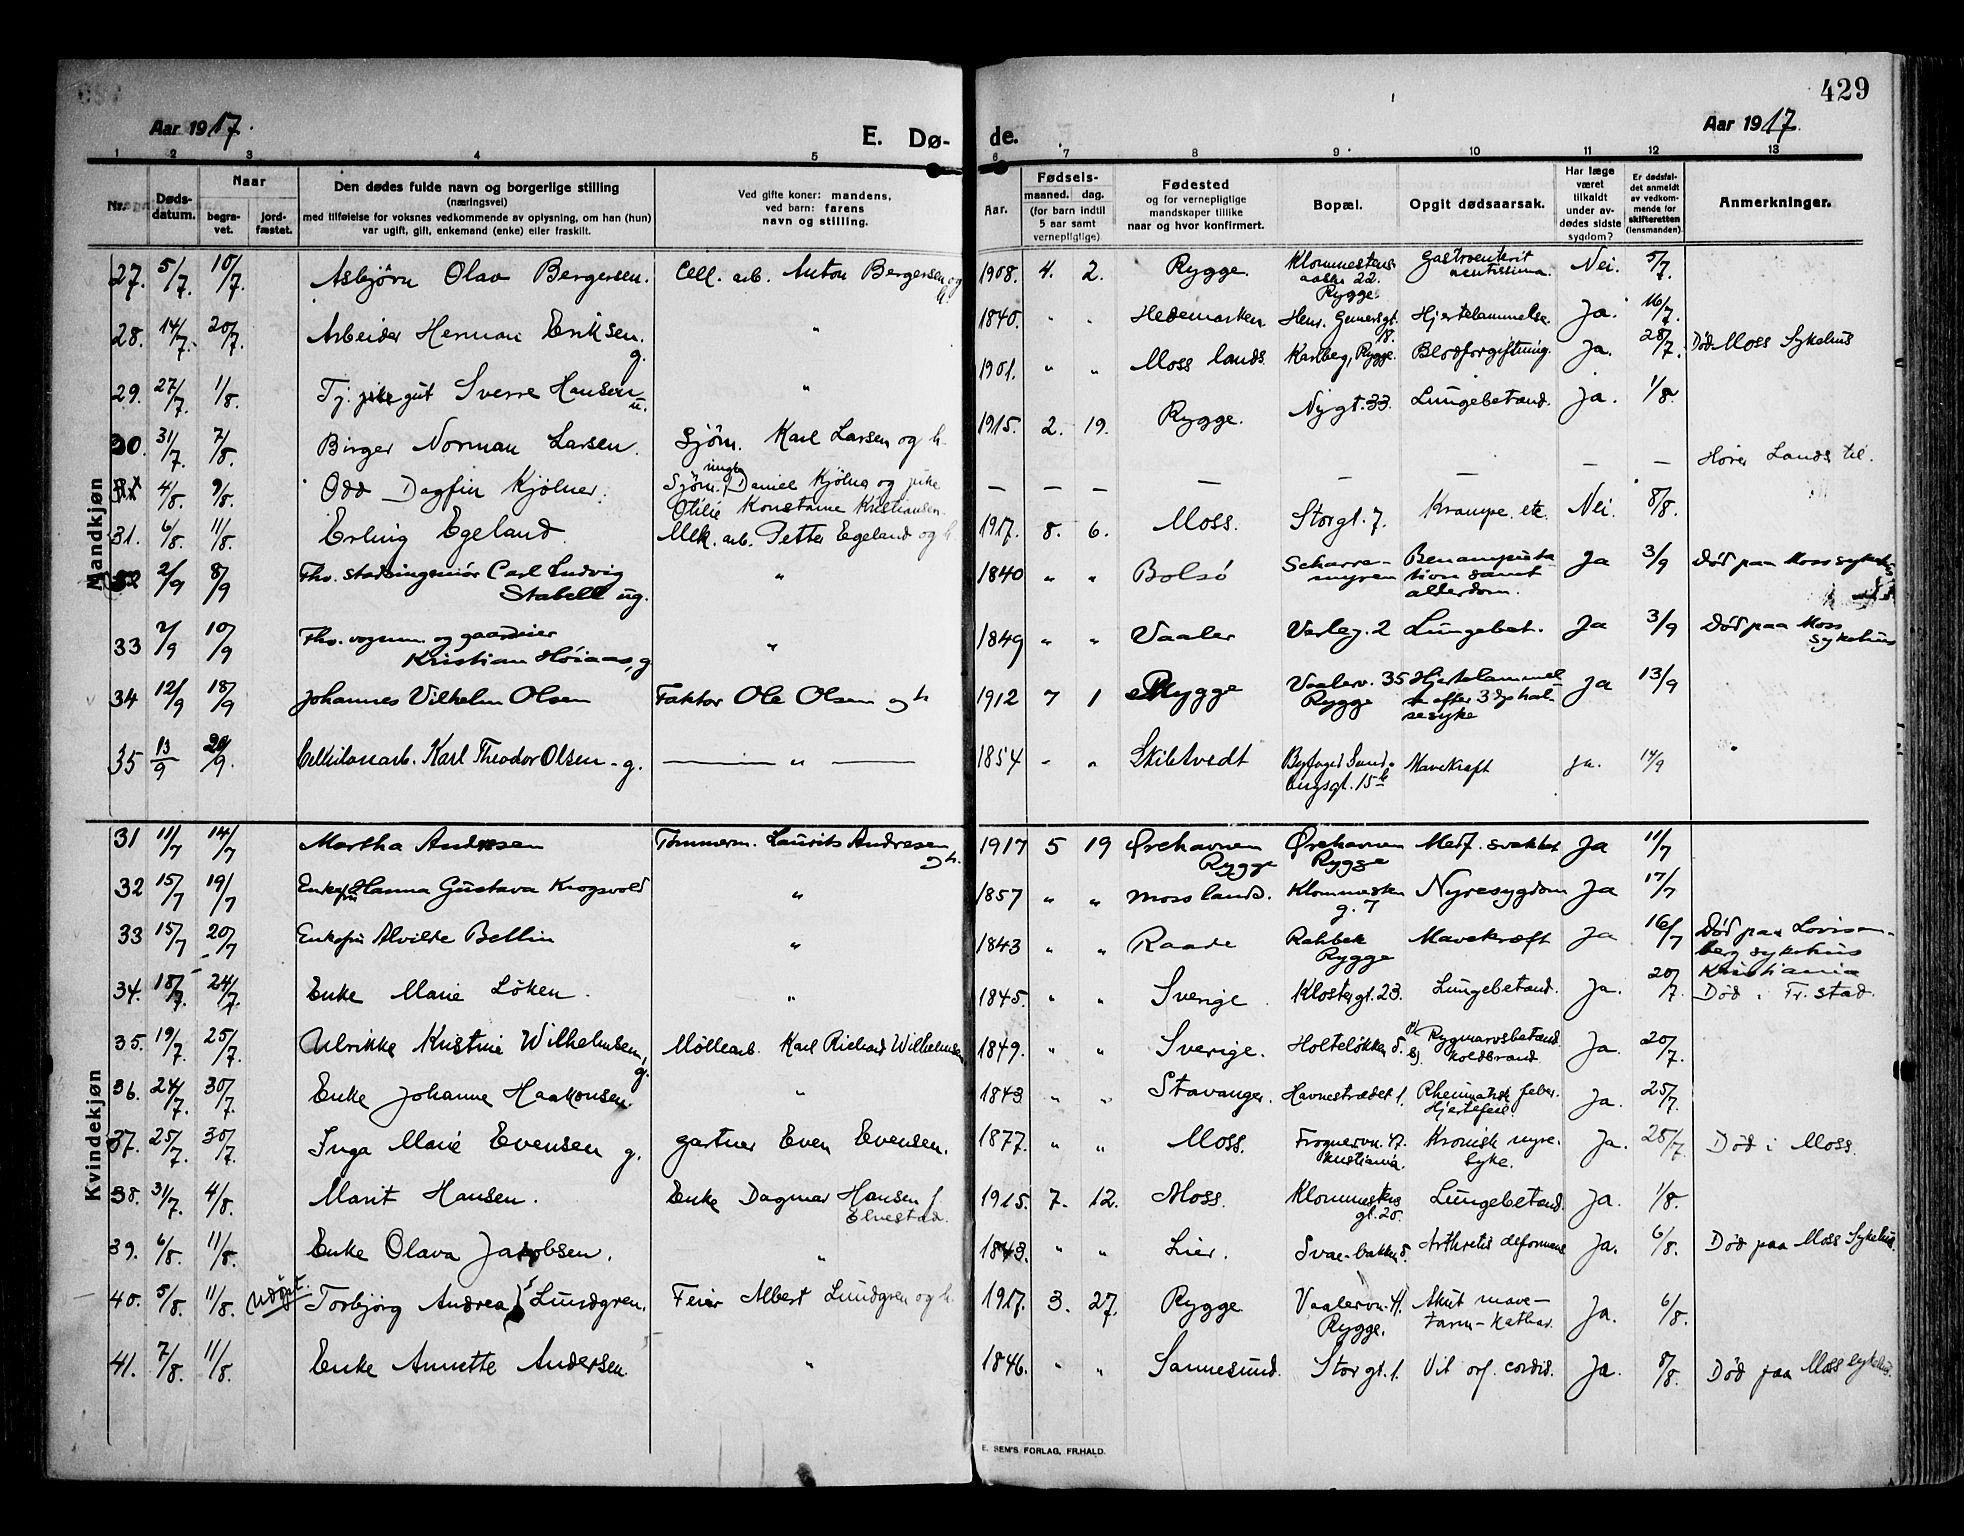 429
Aar 1917.
E. Dø-
de.
Aar 1917.
1 2 3 4 5 6 7 8 9 10 11 12 13
Nr.
Døds-
datum.
Naar
begra-
vet.
jord-
fæstet.
Den dødes fulde navn og borgerlige stilling
(næringsvei)
med tilføielse for voksnes vedkommende av oplysning, om han (hun)
var ugift, gift, enkemand (enke) eller fraskilt.
Ved gifte koner: mandens,
ved barn: farens
navn og stilling.
Aar.
Fødsels-
maaned. dag.
(for barn indtil
5 aar samt
vernepligtige)
Fødested
og for vernepligtige
mandskaper tillike
naar og hvor konfirmert.
Bopæl.
Opgit dødsaarsak.
Har læge
været
tilkaldt
under av-
dødes sidste
sygdom?
Er dødsfal-
det anmeldt
av vedkom-
mende for
skifteretten
(lensmanden)
Anmerkninger.
Mandkjøn
27. 5/7. 10/7. Asbjørn Olav Bergersen. Cell. arb. Anton Bergersen og h. 1908. 4. 2. Rygge. Klommesten 22. Rygge. Gastroenterit acutissima. Nei. 5/7.
28. 14/7. 20/7. Arbeider Herman Eriksen. g. " 1840. " " Hedemarken. Henr. Gernersgt. Hjertelammelse. Ja. 16/7.
29. 27/7. 1/8. Tj. gut Sverre Hansen u. " 1901. " " Moss lands. Karlberg, Rygge. Blodforgiftning. Ja. 28/7. Død Moss Sykehus
30. 31/7. 7/8. Birger Norman Larsen. Sjøm. Karl Larsen og h. 1915. 2. 19. Rygge. Nygt. 33. Lungebetænd. Ja. 1/8.
4/8. 9/8. Odd Dagfin Kjølner. Sjøm. ungk. Daniel Kjølner og pike Otilie Konstanse Kristiansen. — — — — — — — Hører Lands til.
31. 6/8. 11/8. Erling Egeland. Mek. arb. Petter Egeland og h. 1917. 8. 6. Moss. Storgt. 7. Krampe etc. Nei. 8/8.
32 2/9 8/9 Fhv. stadsingeniør Carl Ludvig Stabell ug. " 1840 " " Bolsø Scharre-myren Benamputation samt alderdom. Ja 3/9 Død paa Moss sykehus
33 2/9 10/9 Fhv. vognm. og gaardeier Kristian Høiaas, g " 1849 " " Vaaler Varleg. 2 Lungebet. Ja 3/9 Død paa Moss sykehus
34 12/9 18/9 Johannes Vilhelm Olsen Faktor Ole Olsen og h 1912 7 1 Rygge Vaalerv. 35 Rygge Hjertelammelse efter 3 dg halsesyke Ja 13/9
35 13/9 20/9. Cellulosearb. Karl Theodor Olsen - g. — " — 1854 - " Skiptvedt Byfoged Sandbergsgt. 15b Mavekræft ja. 14/9 "
Kvindekjøn
31 11/7 14/7 Martha Andresen Tømmerm. Laurits Andresen og h. 1917 5 19 Ørehavnen Rygge Ørehavnen Rygge Medf. svakhet Ja 11/7
32 15/7 19/7 Enkefru Hanna Gustava Krogsvold " 1857 " " Moss lands. Klommesten g. 7 Nyresygdom Ja 17/7
33 15/7 20/7 Enkefru Alvilde Bellin " 1843 " " Raade Rahbek Rygge Mavekræft Ja 16/7 Død paa Lovisenberg sykehus Kristiania
34. 18/7. 24/7. Enke Marie Løken. " 1845. " " Sverige. Klostergt. 23. Lungebetænd. Ja. 20/7. Død i Fr.stad.
35. 19/7. 25/7. Ulrikke Kristine Wilhelmsen, g. Møllearb. Karl Richard Wilhelmsen 1849. " " Sverige. Holteløkken 5. Rygmarvsbetænd. koldbrand Ja. 20/7.
36. 24/7. 30/7. Enke Johanne Haakonsen. " 1843. " " Stavanger. Havnestrædet 1. Rheumatisk feber. Hjertefeil. Ja. 25/7.
37. 25/7. 30/7. Inga Marie Evensen g. gartner Even Evensen. 1877. " " Moss. Frognervn. 47. Kristiania. Kronisk nyresyke. Ja. 28/7. Død i Moss.
38. 31/7. 4/8. Marit Hansen. Enke Dagmar Hansen f. Elvestad. 1915. 7. 12. Moss. Klommestensgt. 20. Lungebetænd. Ja. 1/8.
39. 6/8. 11/8. Enke Olava Jacobsen. " 1843. " " Lier. Svae-bakken. Arthretis deformans Ja. 6/8. Død paa Moss Sykehus.
40. 5/8. 11/8. udøpt. Torbjørg Andrea Lundgren. Feier Albert Lundgren og h. 1917. 3. 27. Rygge. Vaalervn. 41. Rygge. Akut mave-tarm-kathar. Ja. 6/8.
41. 7/8. 11/8. Enke Annette Andersen. " 1846. " " Sannesund. Storgt. 1. Vit. orf. cordis. Ja. 8/8. Død paa Moss sykehus.
E. SEM'S FORLAG, FR.HALD.